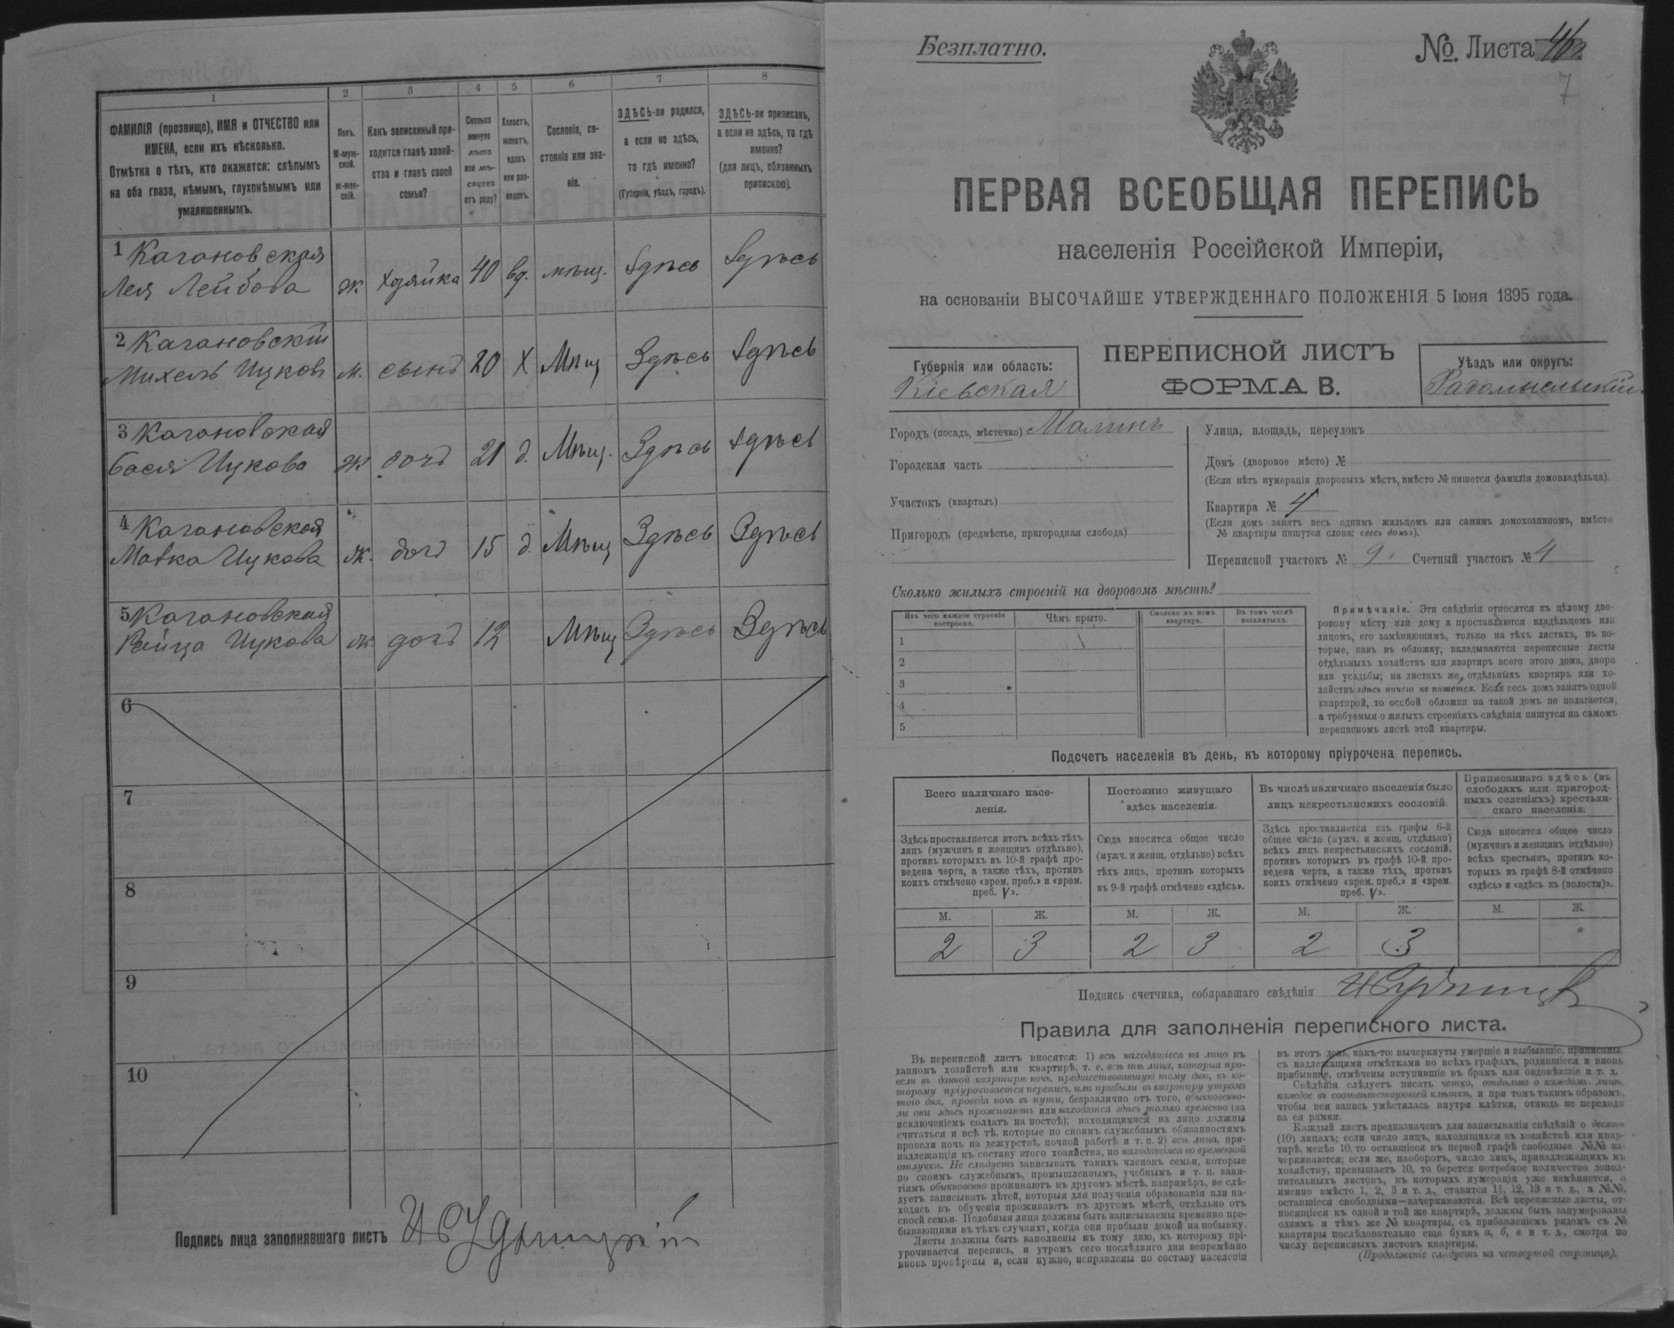 1
2
3
4
5
6
7
8
ФАМИЛІЯ (прозвище), ИМЯ и ОТЧЕСТВО или
ИМЕНА, если ихъ нѣсколько.
Отмѣтка о тѣхъ, кто окажется: слѣпымъ
на оба глаза, нѣмымъ, глухонѣмымъ или
умалишеннымъ.
Полъ.
М-муж-
ской.
ж-жен-
скій.
Какъ записанный при-
ходится главѣ хозяй-
ства и главѣ своей
семьи?
Сколько
минуло
лѣтъ
или мѣ-
сяцевъ
отъ роду?
Холостъ,
женатъ,
вдовъ
или раз-
веденъ.
Сословіе, со-
стояніе или зва-
ніе.
ЗДѢСЬ-ли родился,
а если не здѣсь,
то гдѣ именно?
(Губернія, уѣздъ, городъ).
ЗДѢСЬ-ли приписанъ,
а если не здѣсь, то гдѣ
именно?
(для лицъ, обязанныхъ
припискою).
1 Кагановская
Лея Лейбова ж хозяйка 40 вд. мѣщ. Здѣсь Здѣсь
2 Кагановскій
Михель Ицковъ м. сынъ 20 Х Мѣщ Здѣсь Здѣсь
3 Кагановская
Бася Ицкова ж дочь 21 д. Мѣщ. Здѣсь Здѣсь
4 Кагановская
Ицкова ж. дочь 15 д. Мѣщ Здѣсь Здѣсь
5 Кагановская
Рейца Ицкова ж. дочь 12 Мѣщ Здѣсь Здѣсь
6
7
8
9
10
Подпись лица заполнявшаго листъ
Безплатно.
№. Листа
7
ПЕРВАЯ ВСЕОБЩАЯ ПЕРЕПИСЬ
населенія Россійской Имперіи,
на основаніи ВЫСОЧАЙШЕ УТВЕРЖДЕННАГО ПОЛОЖЕНІЯ 5 Іюня 1895 года.
Губернія или область:
Кіевская
ПЕРЕПИСНОЙ ЛИСТЪ
ФОРМА В.
Уѣздъ или округъ:
Радомысльскій
Городъ (посадъ, мѣстечко) Малинъ
Городская часть
Участокъ (кварталъ)
Пригородъ (предмѣстье, пригородная слобода)
Улица, площадь, переулокъ
Домъ (дворовое мѣсто) №
(Если нѣтъ нумераціи дворовыхъ мѣстъ, вмѣсто № пишется фамилія домовладѣльца).
Квартира № 4
(Если домъ занятъ весь однимъ жильцомъ или самимъ домохозяиномъ, вмѣсто
№ квартиры пишутся слова: «весь домъ»).
Переписной участокъ № 9. Счетный участокъ № 4
Сколько жилыхъ строеній на дворовомъ мѣстѣ?
Изъ чего каждое строеніе
построено.
Чѣмъ крыто.
Сколько въ немъ
квартиръ.
Въ томъ числѣ
незанятыхъ.
1
2
3
4
5
Примѣчаніе. Эти свѣдѣнія относятся къ цѣлому дво-
ровому мѣсту или дому и проставляются владѣльцемъ или
лицомъ, его замѣняющимъ, только на тѣхъ листахъ, въ ко-
торые, какъ въ обложку, вкладываются переписные листы
отдѣльныхъ хозяйствъ или квартиръ всего этого дома, двора
или усадьбы; на листахъ же, отдѣльныхъ квартиръ или хо-
зяйствъ здѣсь ничего не пишется. Если весь домъ занятъ одной
квартирой, то особой обложки на такой домъ не полагается,
а требуемыя о жилыхъ строеніяхъ свѣдѣнія пишутся на самомъ
переписномъ листѣ этой квартиры.
Подсчетъ населенія въ день, къ которому пріурочена перепись.
Всего наличнаго насе-
ленія.
Постоянно живущаго
здѣсь населенія.
Въ числѣ наличнаго населенія было
лицъ некрестьянскихъ сословій.
Приписаннаго здѣсь (въ
слободахъ или пригород-
ныхъ селеніяхъ) крестьян-
скаго населенія.
Здѣсь проставляется итогъ всѣхъ тѣхъ
лицъ (мужчинъ и женщинъ отдѣльно),
противъ которыхъ въ 10-й графѣ про-
ведена черта, а также тѣхъ, противъ
коихъ отмѣчено «врем. преб.» и «врем.
преб. V».
Сюда вносится общее число
(мужч. и женщ. отдѣльно) всѣхъ
тѣхъ лицъ, противъ которыхъ
въ 9-й графѣ отмѣчено «здѣсь».
Здѣсь проставляется изъ графы 6-й
общее число (мужч. и женщ. отдѣльно)
всѣхъ лицъ некрестьянскихъ сословій,
противъ которыхъ въ графѣ 10-й про-
ведена черта, а также тѣхъ, противъ
коихъ отмѣчено «врем. преб.» и «врем.
преб. V».
Сюда вносится общее число
(мужчинъ и женщинъ отдѣльно)
всѣхъ крестьянъ, противъ ко-
торыхъ въ графѣ 8-й отмѣчено
«здѣсь» и «здѣсь къ (волости)».
М. Ж. М. Ж. М. Ж. М. Ж.
2 3 2 3 2 3
Подпись счетчика, собиравшаго свѣдѣнія
Правила для заполненія переписного листа.
Въ переписной листъ вносятся: 1) всѣ находящіеся на лицо въ
данномъ хозяйствѣ или квартирѣ, т. е. всѣ тѣ лица, которыя про-
вели въ данной квартирѣ ночь, предшествовавшую тому дню, къ ко-
торому пріурочивается перепись, или прибыли въ квартиру утромъ
того дня, проведя ночь въ пути, безразлично отъ того, обыкновенно-
ли они здѣсь проживаютъ или находятся здѣсь только временно (за
исключеніемъ солдатъ на постоѣ); находящимися на лицо должны
считаться и всѣ тѣ, которые по своимъ служебнымъ обязанностямъ
провели ночь на дежурствѣ, ночной работѣ и т. п. 2) всѣ лица, при-
надлежащія къ составу этого хозяйства, но находящіяся во временной
отлучкѣ. Не слѣдуетъ записывать такихъ членовъ семьи, которые
по своимъ служебнымъ, промышленнымъ, учебнымъ и т. п. заня-
тіямъ обыкновенно проживаютъ въ другомъ мѣстѣ, напримѣръ, не слѣ-
дуетъ записывать дѣтей, которыя для полученія образованія или на-
ходясь въ обученіи проживаютъ въ другомъ мѣстѣ, отдѣльно отъ
своей семьи. Подобныя лица должны быть записываемы временно пре-
бывающими въ тѣхъ случаяхъ, когда они прибыли домой на побывку.
Листы должны быть заполнены къ тому дню, къ которому прі-
урочивается перепись, и утромъ сего послѣдняго дня непремѣнно
вновь провѣрены и, если нужно, исправлены по составу населенія
въ этотъ день, какъ-то: вычеркнуты умершіе и выбывшіе, приписаны
съ надлежащими отмѣтками во всѣхъ графахъ, родившіеся и вновь
прибывшіе, отмѣчены вступившіе въ бракъ или овдовѣвшіе и т. д.
Свѣдѣнія слѣдуетъ писать четко, отдѣльно о каждомъ лицѣ,
каждое въ соотвѣтствующей клѣткѣ, и при томъ такимъ образомъ,
чтобы вся запись умѣстилась внутри клѣтки, отнюдь не переходя
за ея рамки.
Каждый листъ предназначенъ для записыванія свѣдѣній о десяти
(10) лицахъ; если число лицъ, находящихся въ хозяйствѣ или квар-
тирѣ, менѣе 10, то оставшіеся въ первой графѣ свободные №№ за-
черкиваются; если же, наоборотъ, число лицъ, принадлежащихъ къ
хозяйству, превышаетъ 10, то берется потребное количество допол-
нительныхъ листовъ, въ которыхъ нумерація уже измѣняется, а
именно вмѣсто 1, 2, 3 и т. д., ставится 11, 12, 13 и т. д., а №№,
оставшіеся свободными—зачеркиваются. Всѣ переписные листы, от-
носящіеся къ одной и той же квартирѣ, должны быть занумерованы
однимъ и тѣмъ же № квартиры, съ прибавленіемъ рядомъ съ №
квартиры послѣдовательно еще буквъ а, б, в и т. д., смотря по
числу переписныхъ листовъ квартиры.
(Продолженіе слѣдуетъ на четвертой страницѣ).